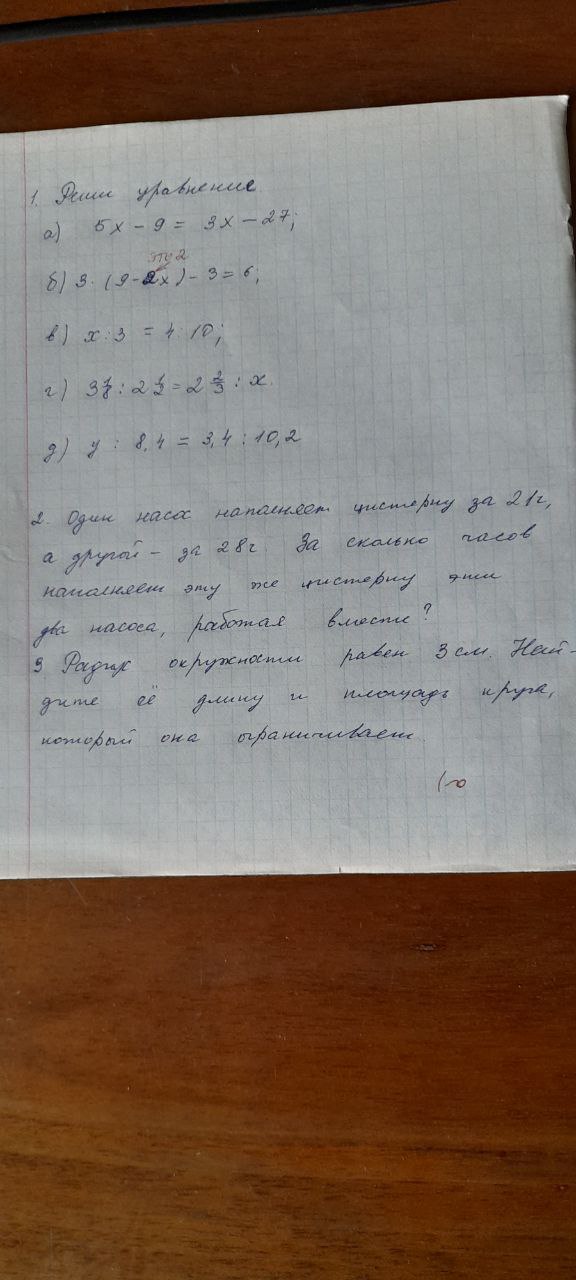 1. Реши уравнение.
а) 5x - 9 = 3x - 27;
это 2
б) 3·(9-2x) - 3 = 6;
в) x : 3 = 4 : 10;
г) 3 1/8 : 2 1/2 = 2 2/3 : x.
д) y : 8,4 = 3,4 : 10,2
2. Один насос наполняет цистерну за 21ч,
а другой - за 28ч. За сколько часов
наполняет эту же цистерну эти
два насоса, работая вместе?
3. Радиус окружности равен 3 см. Най-
дите её длину и площадь круга,
который она ограничивает.